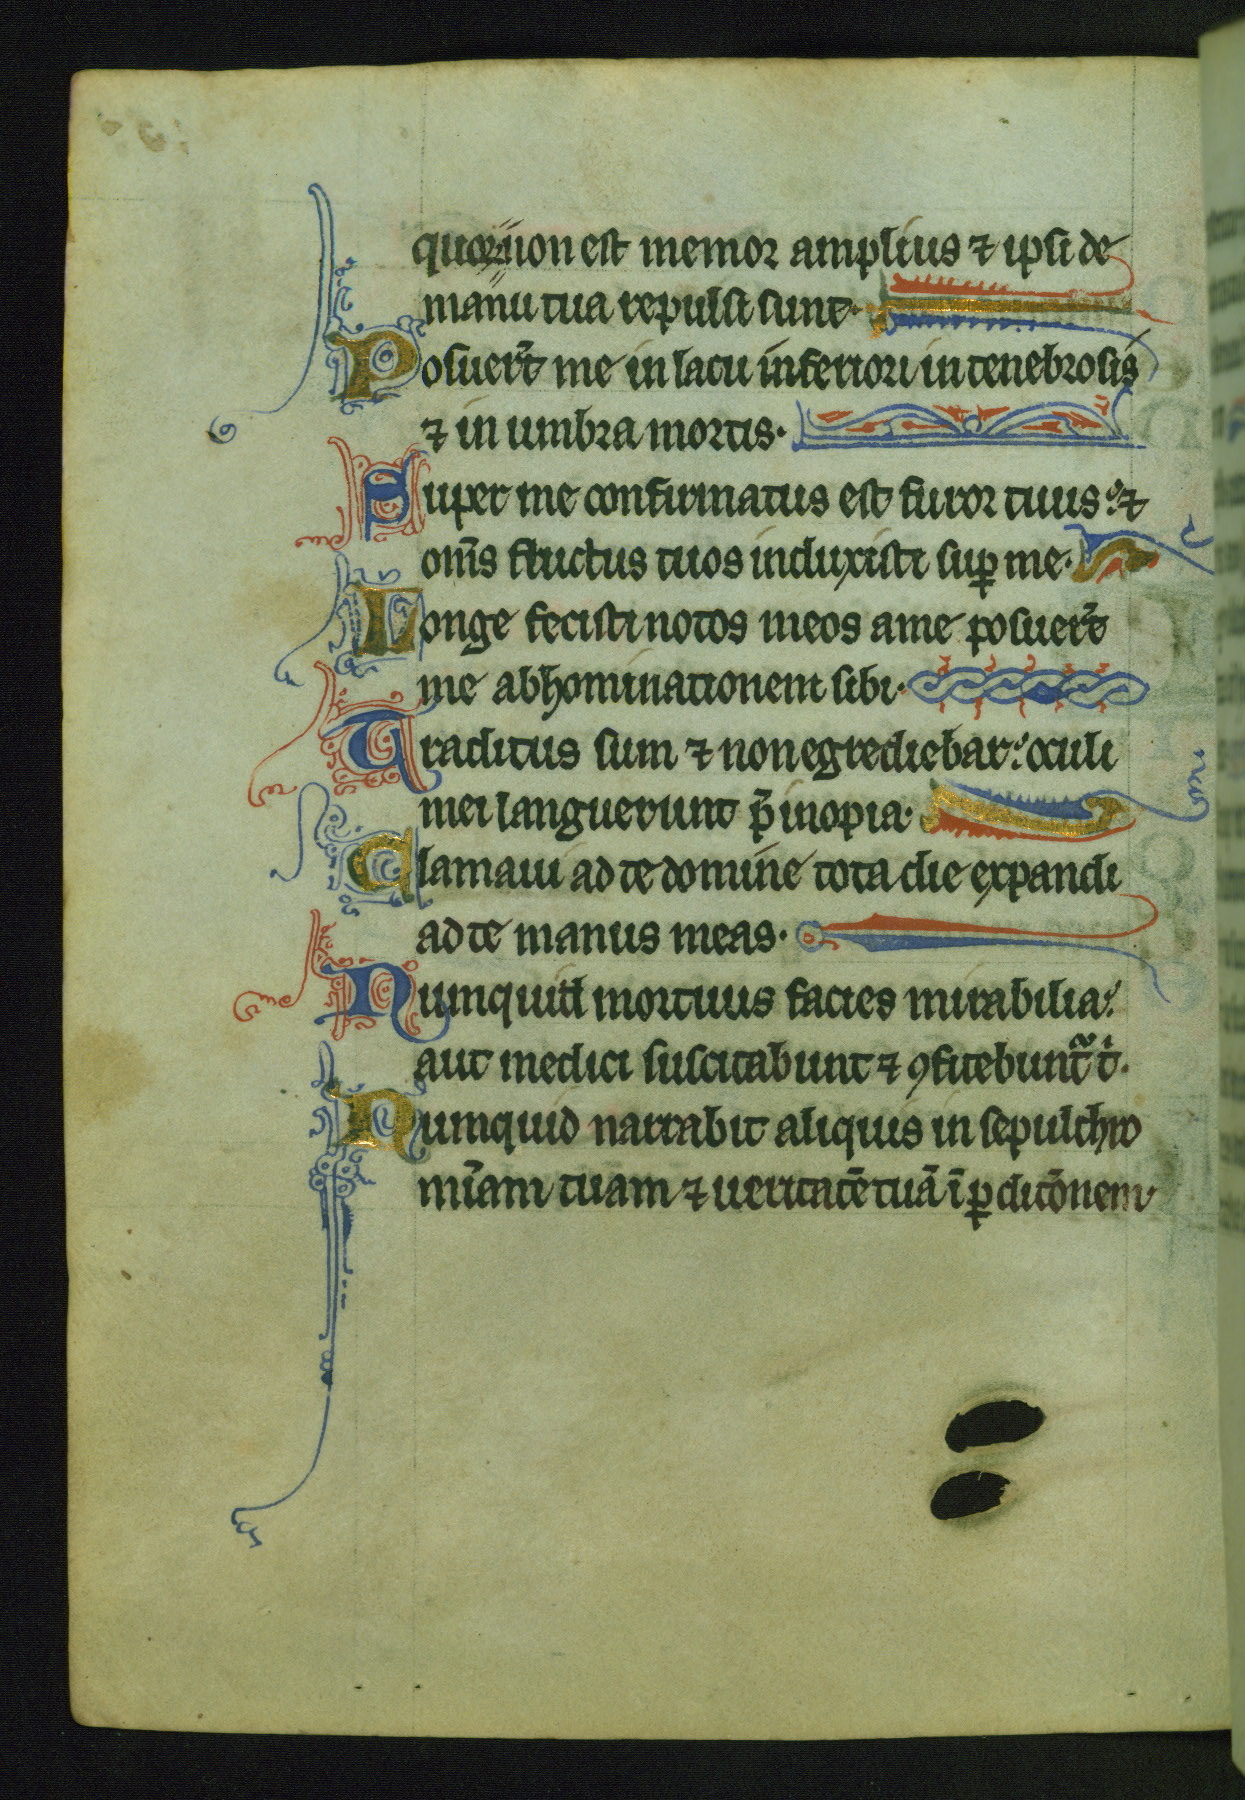 quoꝝ non est memor amplius ⁊ ipsi de
manu tua repulsi sunt·
Posuer̄t me in lacu inferiori in tenebrosis
⁊ in umbra mortis·
Super me confirmatus est furor tuus: ⁊
om̄s fluctus tuos induxisti suꝑ me·
Longe fecisti notos meos a me posuer̄t
me abhominationem sibi·
Traditus sum ⁊ non egrediebar: oculi
mei languerunt p̄ inopia·
Clamaui ad te domine tota die expandi
ad te manus meas·
Numquid mortuus facies mirabilia:
aut medici suscitabunt ⁊ ꝯfitebunt᷑ t̄·
Numquid narrabit aliquis in sepulchro
mīam tuam ⁊ ueritatē tuā ī ꝑditōnem·